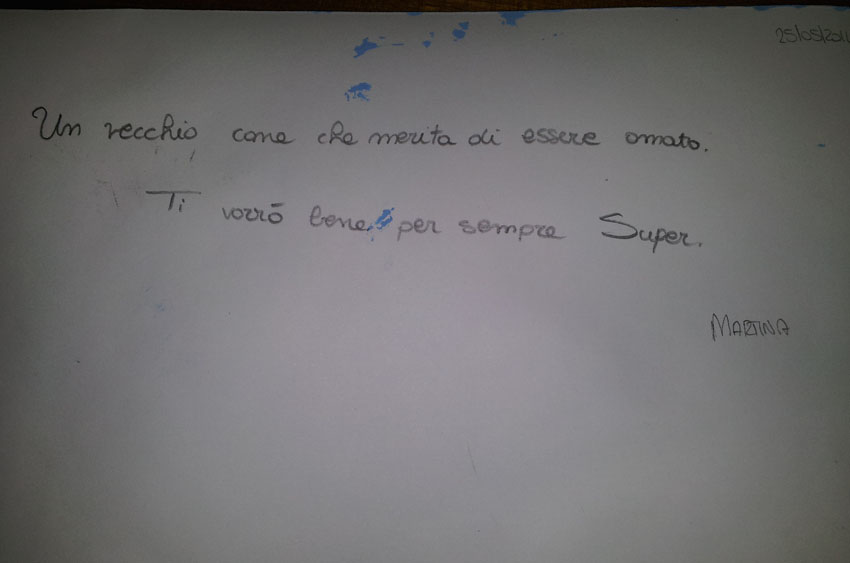 25/05/2011
Un vecchio cane che merita di essere amato.
Ti vorrò bene per sempre Super.
MARTINA